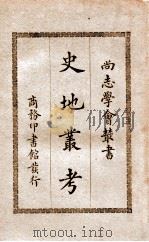 尚志學會叢書
史地叢考
商務印書館發行
www.mtoou.info